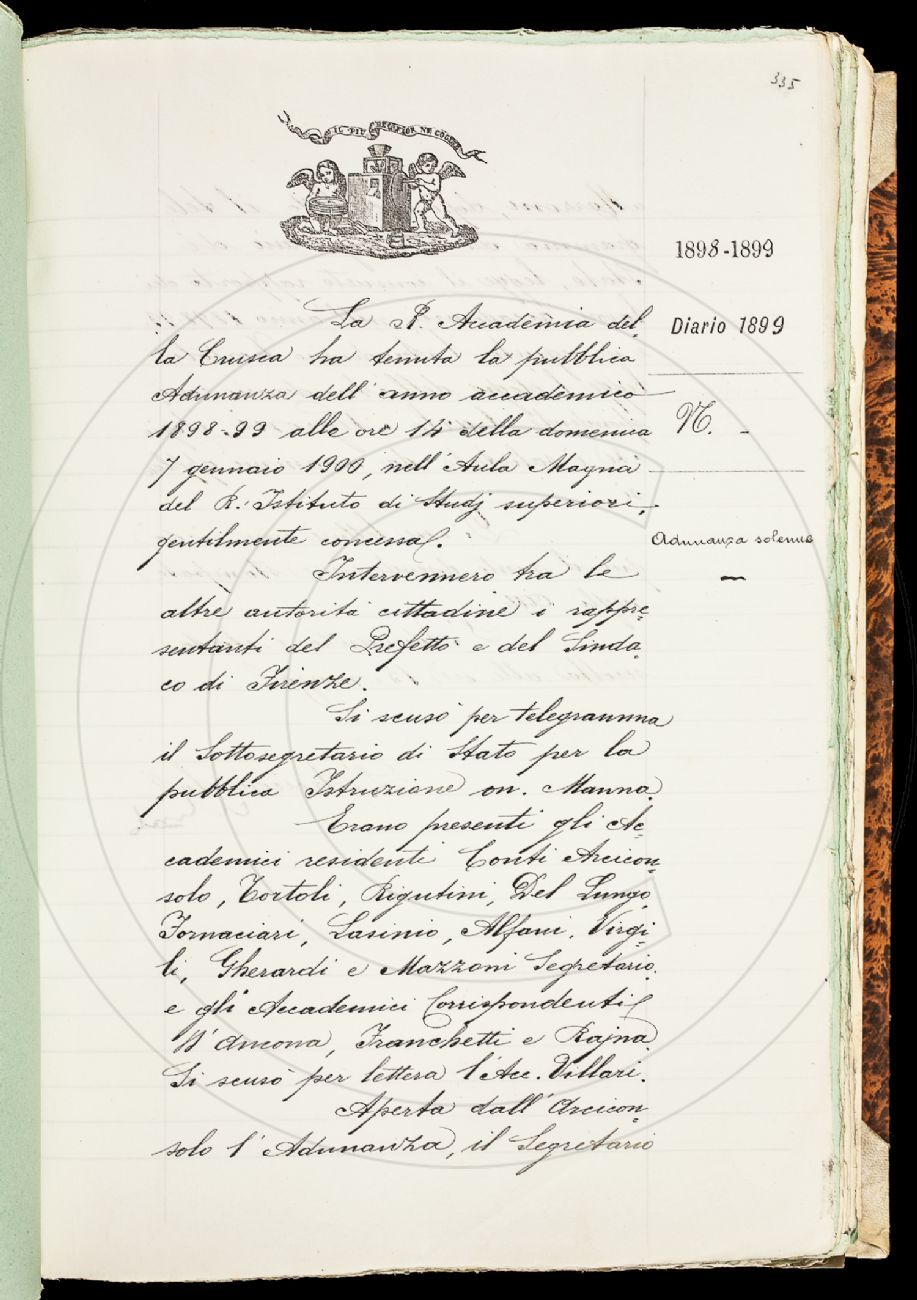 335
IL PIÙ BEL FIOR NE COGLIE
1898-1899
Diario 1899
N. -
Adunanza solenne
La R. Accademia del-
la Crusca ha tenuta la pubblica
Adunanza dell'anno accademico
1898-99 alle ore 14 della domenica
7 gennaio 1900, nell'Aula Magna
del R. Istituto di Studj superiori,
gentilmente concessa.
Intervennero tra le
altre autorità cittadine i rappre=
sentanti del Prefetto e del Sinda-
co di Firenze.
Si scusò per telegramma
il Sottosegretario di Stato per la
pubblica Istruzione on. Manna.
Erano presenti gli Ac=
cademici residenti Conti Arcicon=
solo, Tortoli, Rigutini, Del Lungo,
Fornaciari, Lasinio, Alfani, Virgi=
li, Gherardi e Mazzoni Segretario,
e gli Accademici Corrispondenti
D'Ancona, Franchetti e Rajna.
Si scusò per lettera l'Acc. Villari.
Aperta dall'Arcicon-
solo l'Adunanza, il Segretario